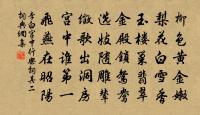 柳色黃金嫩
梨花白雪香
玉樓巢翡翠
金殿鎖鴛鴦
選妓隨雕輦
徵歌出洞房
宮中誰第一
飛燕在昭陽
李白宮中行樂詞其二
詞典網集